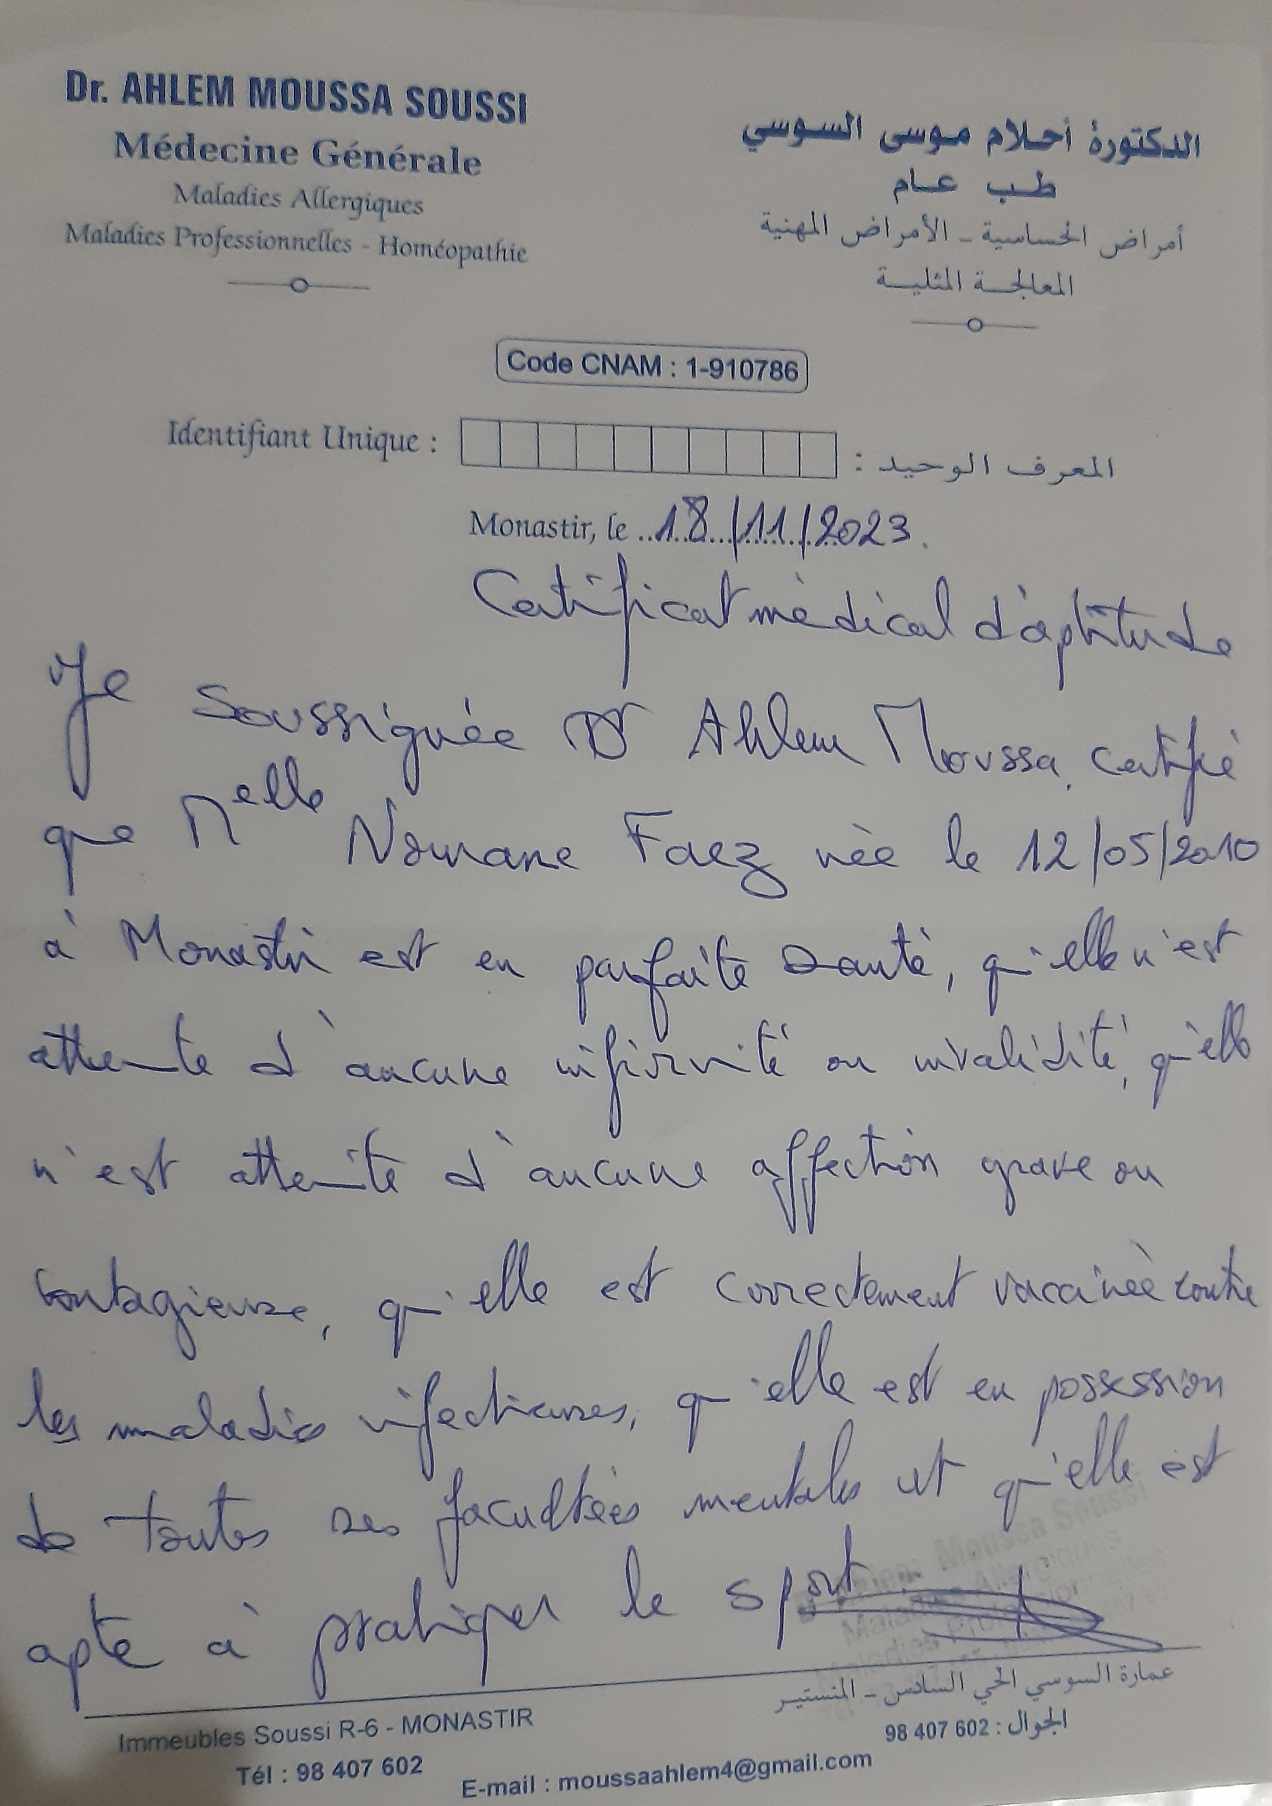 Dr. AHLEM MOUSSA SOUSSI
Médecine Générale
Maladies Allergiques
Maladies Professionnelles - Homéopathie
الدكتورة أحلام موسى السوسي
طب عام
أمراض الحساسية - الأمراض المهنية
المعالجة المثلية
Code CNAM : 1-910786
Identifiant Unique :
المعرف الوحيد :
Monastir, le 18/11/2023.
Certificat médical d'aptitude
Je soussignée Dr Ahlem Moussa certifie
que Melle Nourane Faez née le 12/05/2010
à Monastir est en parfaite santé, qu'elle n'est
atteinte d'aucune infirmité ou invalidité, qu'elle
n'est atteinte d'aucune affection grave ou
contagieuse, qu'elle est correctement vaccinée contre
les maladies infectieuses, qu'elle est en possession
de toutes ses facultées mentales et qu'elle est
apte à pratiquer le sport
Moussa Soussi
Maladies Allergiques
Maladies
عمارة السوسي الحي السادس - المنستير
الجوال : 602 407 98
Immeubles Soussi R-6 - MONASTIR
Tél : 98 407 602
E-mail : moussaahlem4@gmail.com